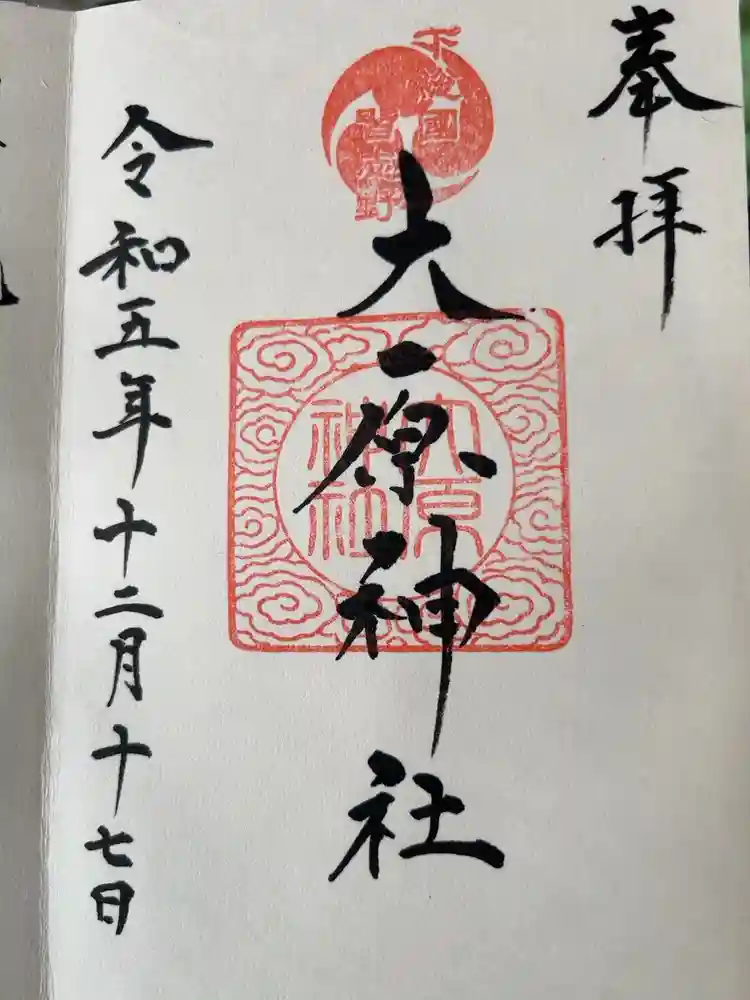 奉拝
下総國
習志野
大原神社
大原
神社
令和五年十二月十七日